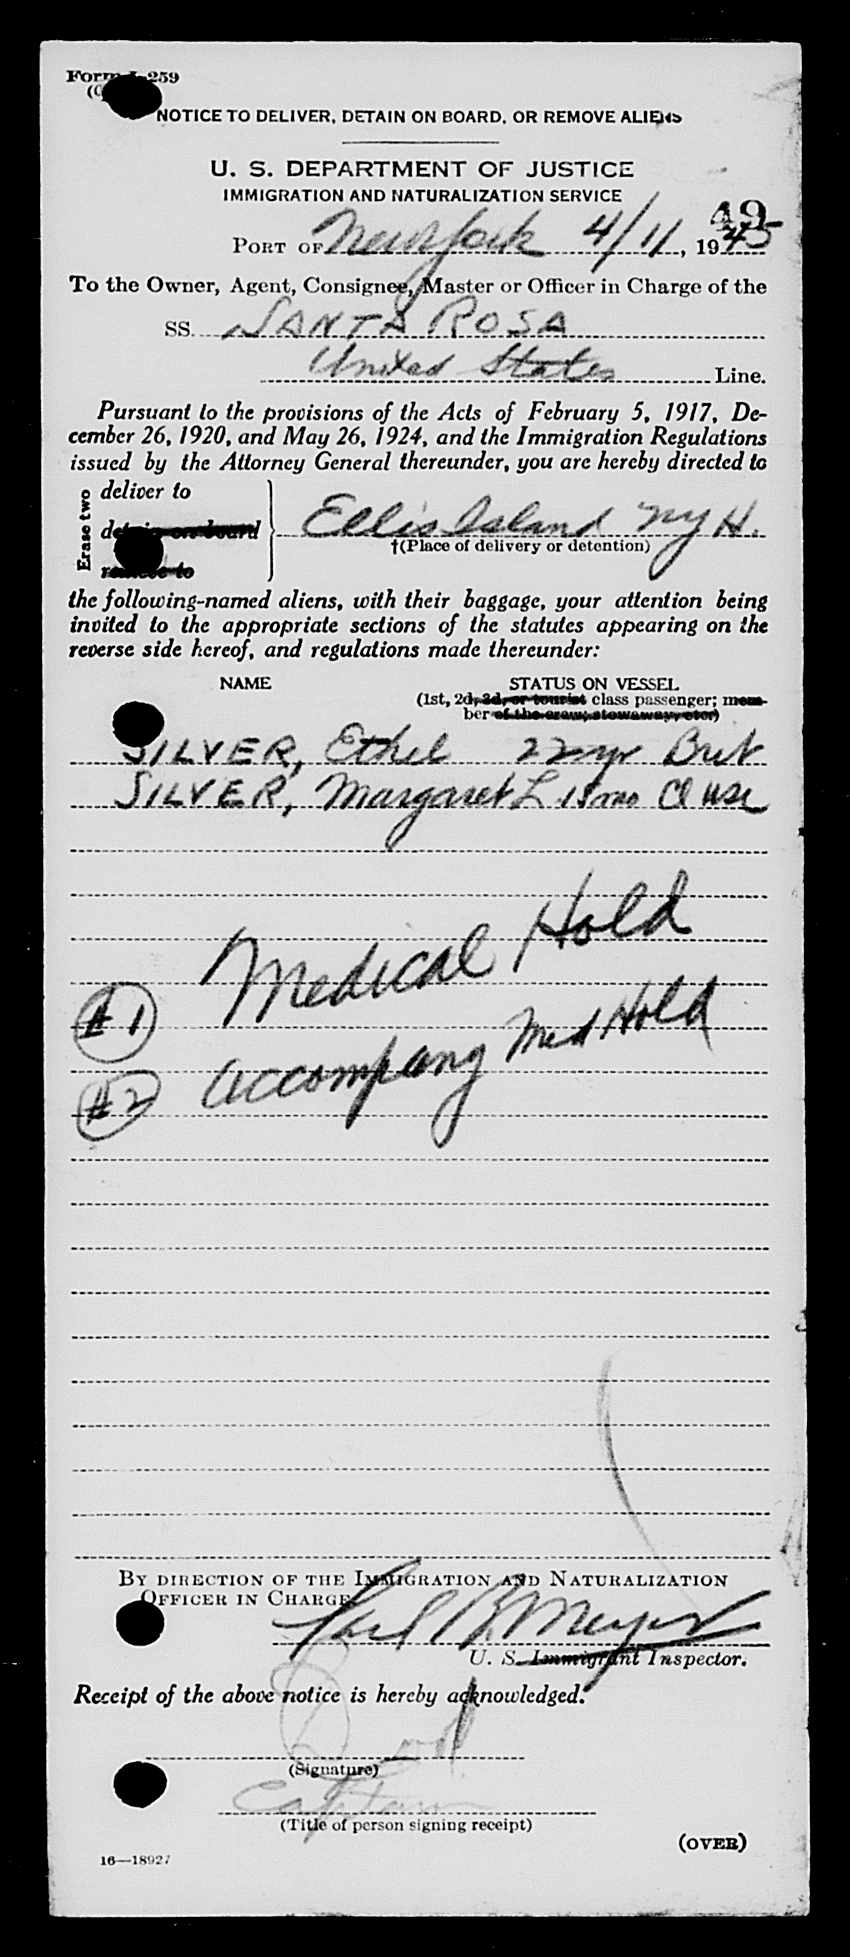 NOTICE TO DELIVER, DETAIN ON BOARD, OR REMOVE ALIENS
U. S. DEPARTMENT OF JUSTICE
IMMIGRATION AND NATURALIZATION SERVICE
49
PORT OF New York 4/11, 1945
To the Owner, Agent, Consignee, Master or Officer in Charge of the
SS. SANTA ROSA
United States Line.
Pursuant to the provisions of the Acts of February 5, 1917, De-
cember 26, 1920, and May 26, 1924, and the Immigration Regulations
issued by the Attorney General thereunder, you are hereby directed to
Erase two
deliver to
detain on board
remove to
Ellis Island NY H.
†(Place of delivery or detention)
the following-named aliens, with their baggage, your attention being
invited to the appropriate sections of the statutes appearing on the
reverse side hereof, and regulations made thereunder:
NAME
STATUS ON VESSEL
(1st, 2d, 3d, or tourist class passenger; mem-
ber of the crew; stowaway, etc.)
SILVER, Ethel 22 yr Brit
SILVER, Margaret L 15 mo
Medical Hold
#1
accompang Med Hold
#2
BY DIRECTION OF THE IMMIGRATION AND NATURALIZATION
OFFICER IN CHARGE
Meyer
U. S. Immigrant Inspector.
Receipt of the above notice is hereby acknowledged.
(Signature)
Captain
(Title of person signing receipt)
(OVER)
16—18927